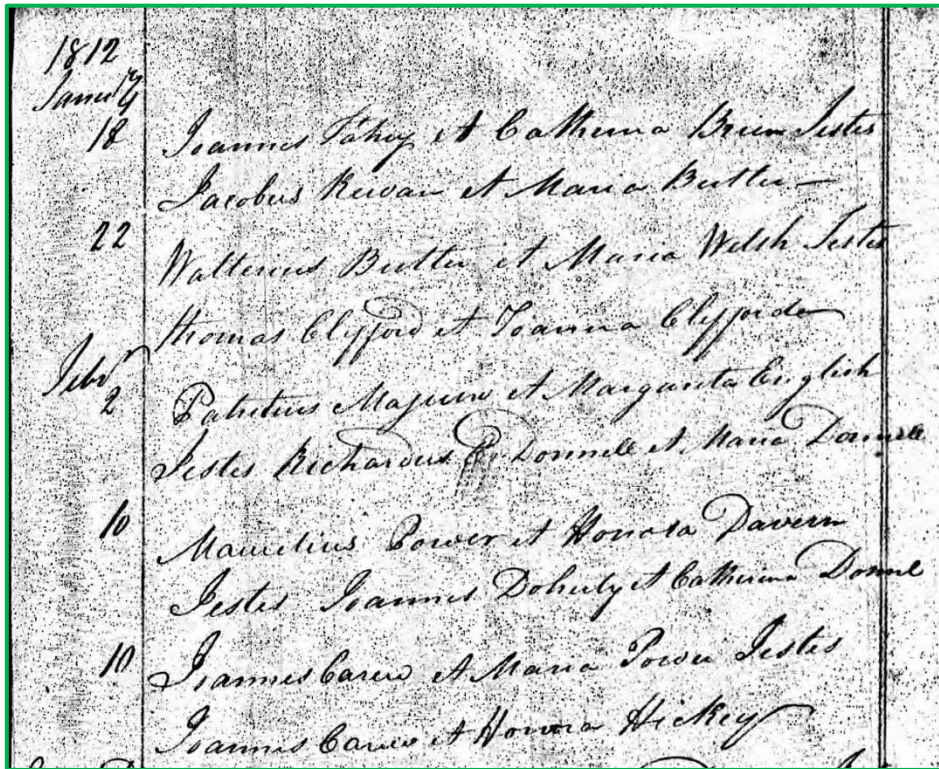 1812
Janury
18 Joannes Fahy et Catherina Breen Testes
Jacobus Kirwan et Maria Butler
22 Walterius Butler et Maria Welsh Testes
Thomas Clyfford et Joanna Clyfford
Febr
2 Patritius Maguire et Margarita English
Testes Richardus Donnell et Maria Donnell
10 Mauritius Power et Honora Davern
Testes Joannes Doherty et Catherina
10 Joannes Carew et Maria Power Testes
Joannes Carew et Honora Hickey